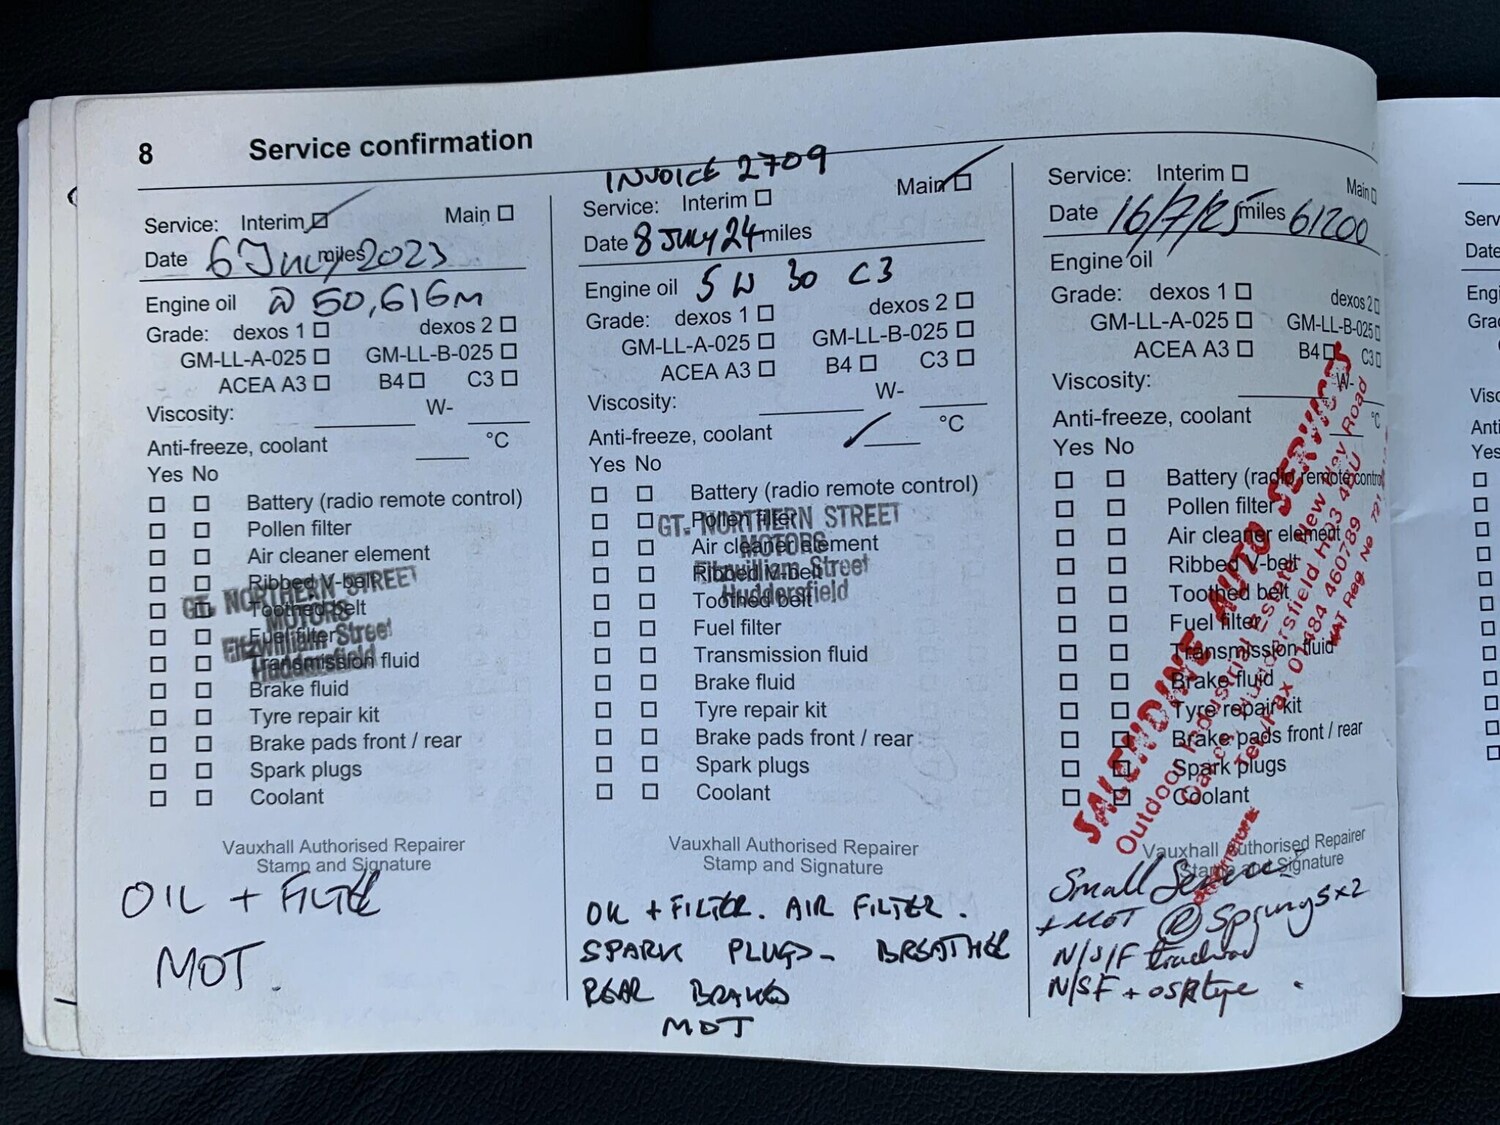 8 Service confirmation
Service: Interim Main
Date 6 July miles 2023
Engine oil @ 50,616m
Grade: dexos 1 dexos 2
GM-LL-A-025 GM-LL-B-025
ACEA A3 B4 C3
Viscosity: W-
Anti-freeze, coolant °C
Yes No
Battery (radio remote control)
Pollen filter
Air cleaner element
Ribbed V-belt
Toothed belt
Fuel filter
Transmission fluid
Brake fluid
Tyre repair kit
Brake pads front / rear
Spark plugs
Coolant
GT. NORTHERN STREET
MOTORS
Fitzwilliam Street
Huddersfield
Vauxhall Authorised Repairer
Stamp and Signature
OIL + FILTER
MOT.
INVOICE 2709
Service: Interim Main
Date 8 JULY 24 miles
Engine oil 5 W 30 C3
Grade: dexos 1 dexos 2
GM-LL-A-025 GM-LL-B-025
ACEA A3 B4 C3
Viscosity: W-
Anti-freeze, coolant °C
Yes No
Battery (radio remote control)
Pollen filter
Air cleaner element
Ribbed V-belt
Toothed belt
Fuel filter
Transmission fluid
Brake fluid
Tyre repair kit
Brake pads front / rear
Spark plugs
Coolant
GT. NORTHERN STREET
MOTORS
Fitzwilliam Street
Huddersfield
Vauxhall Authorised Repairer
Stamp and Signature
OIL + FILTER. AIR FILTER.
SPARK PLUGS - BREATHER
REAR BRAKES
MOT
Service: Interim Main
Date 16/7/25 miles 61200
Engine oil
Grade: dexos 1 dexos 2
GM-LL-A-025 GM-LL-B-025
ACEA A3 B4 C3
Viscosity: W-
Anti-freeze, coolant °C
Yes No
Battery (radio remote control)
Pollen filter
Air cleaner element
Ribbed V-belt
Toothed belt
Fuel filter
Transmission fluid
Brake fluid
Tyre repair kit
Brake pads front / rear
Spark plugs
Coolant
SALENDINE AUTO SERVICES
Estate New Hey Road
Huddersfield HD3
Tel/Fax 01484 460789
VAT Reg. No 721
Vauxhall Authorised Repairer
Stamp and Signature
Small Service
+ MOT Springs x2
N/S/F trackrod
N/SF + OSR tyre
Serv
Date
Engi
Grad
Visc
Anti
Yes